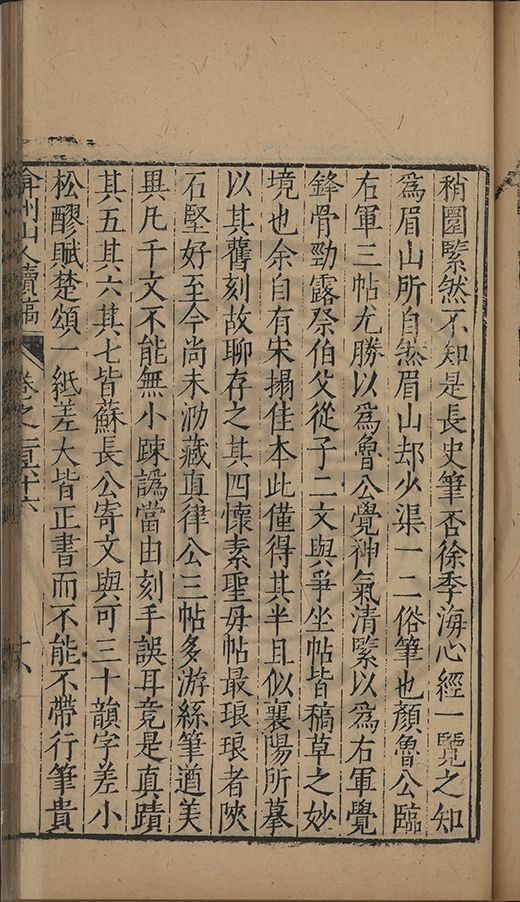 稍圓緊然不知是長史筆否徐季海心經一覽之知
爲眉山所自然眉山却少渠一二俗筆也顏魯公臨
右軍三帖尤勝以爲魯公覺神氣清緊以爲右軍覺
鋒骨勁露祭伯父從子二文與爭坐帖皆稿草之妙
境也余自有宋搨佳本此僅得其半且似襄陽所摹
以其舊刻故聊存之其四懷素聖毋帖最琅琅者陜
石堅好至今尚未泐藏真律公三帖多游絲筆遒美
異凡千文不能無小踈譌當由刻手誤耳竟是真蹟
其五其六其七皆蘇長公寄文與可三十韻字差小
松醪賦楚頌一紙差大皆正書而不能不帶行筆貴
弇州山人續稿
卷之一百六十六